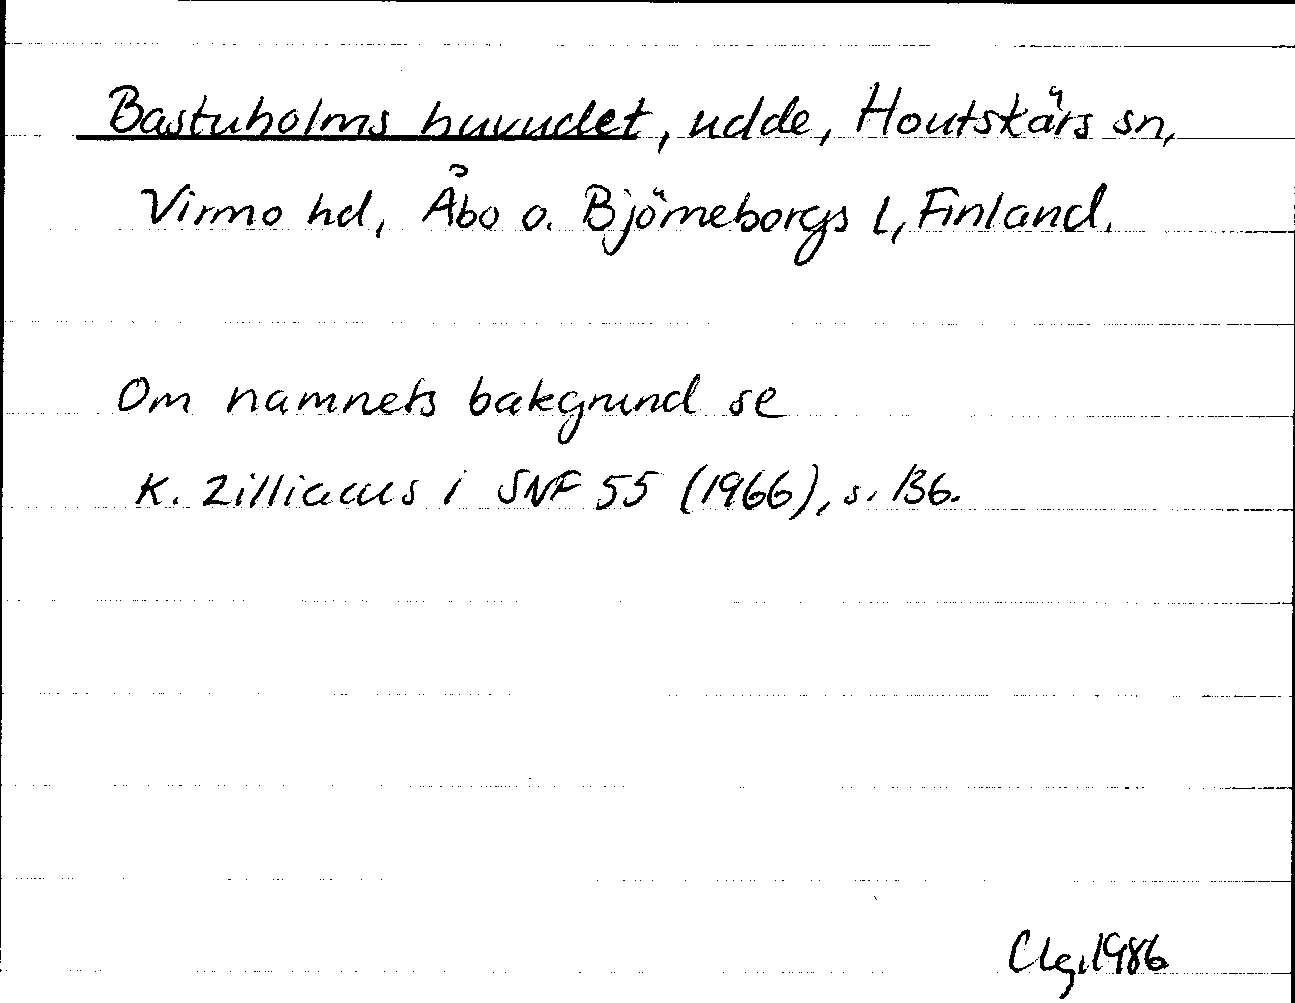 Bastuholms huvudet, udde, Houtskärs sn,
Virmo hd, Åbo o. Björneborgs l, Finland.
Om namnets bakgrund se
K. Zilliacus i SNF 55 (1966), s. 136.
Clg. 1986